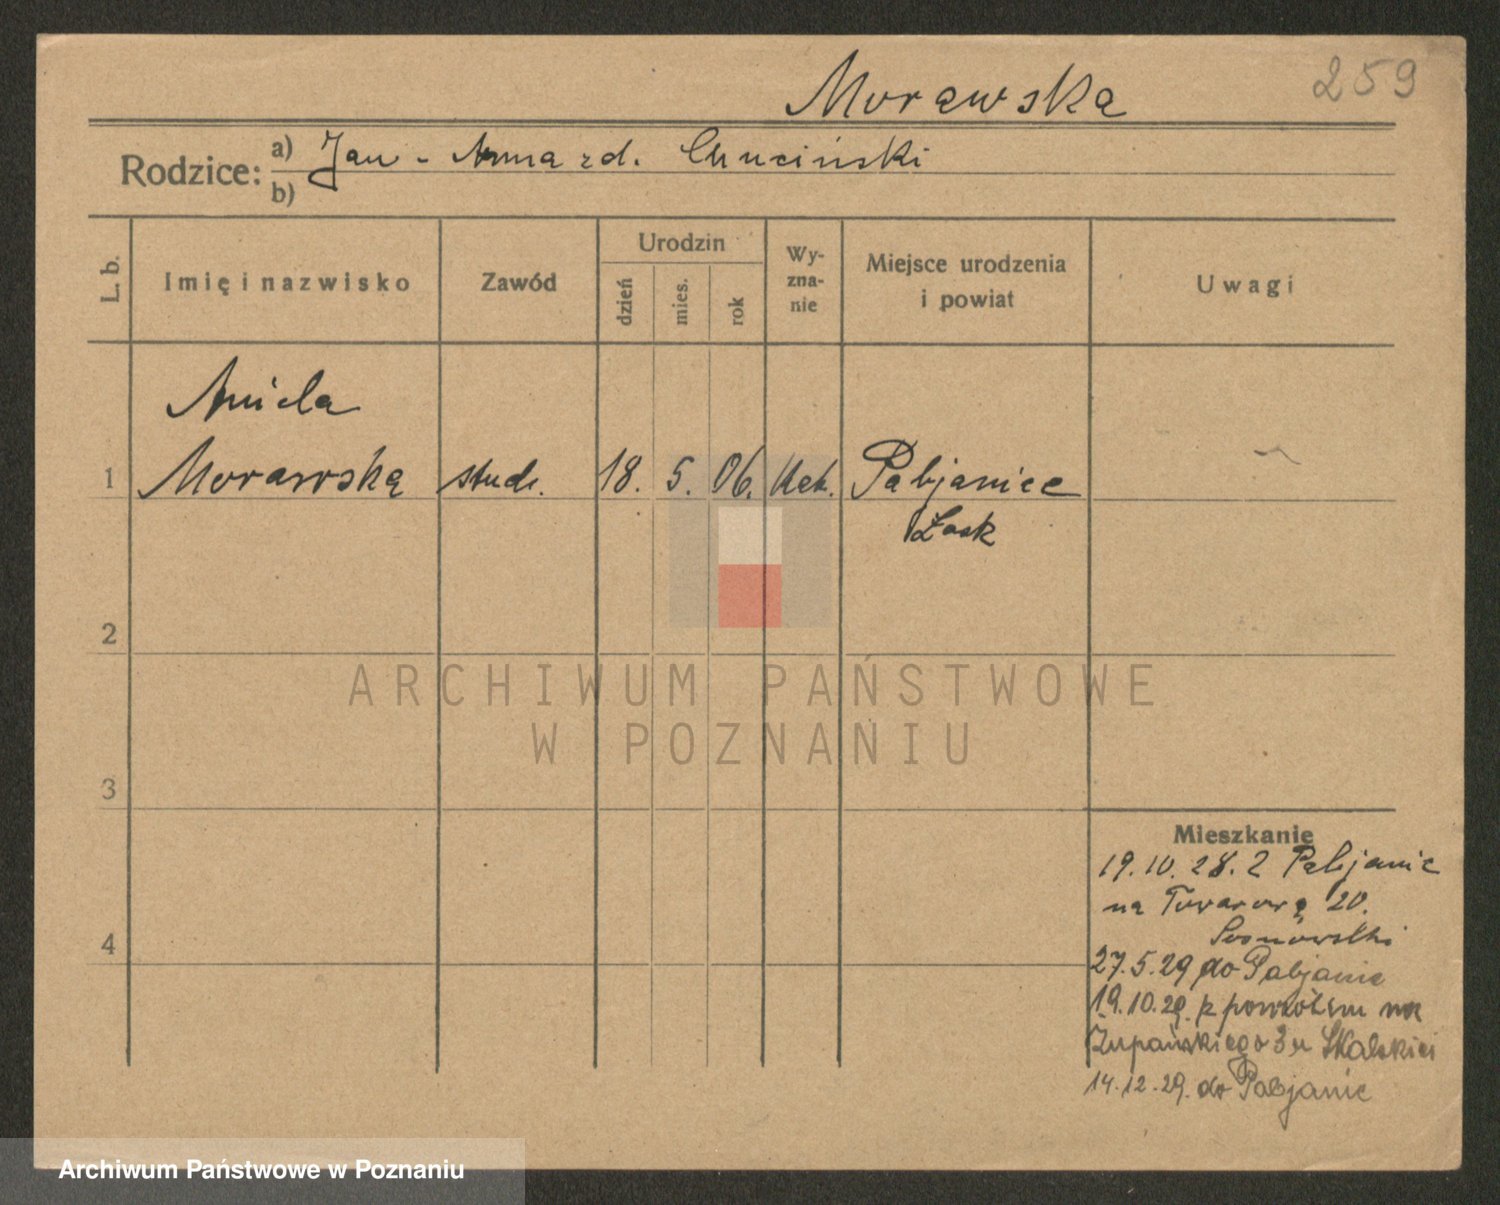 259
Morawska
Rodzice: a) Jan - Anna zd. Chuciński
b)
L. b.
Imię i nazwisko
Zawód
Urodzin
dzień
mies.
rok
Wy-
zna-
nie
Miejsce urodzenia
i powiat
Uwagi
Aniela
1 Morawska stud. 18. 5. 06. Kat. Pabjanice
Łask
2
3
4
ARCHIWUM PAŃSTWOWE
W POZNANIU
Mieszkanie
19.10.28. z Pabjanic
na Towarową 20.
Sosnowski
27.5.29 do Pabjanic
19.10.29. z powrotem na
Żupańskiego 3 u Skalskiej
14.12.29. do Pabjanic
Archiwum Państwowe w Poznaniu